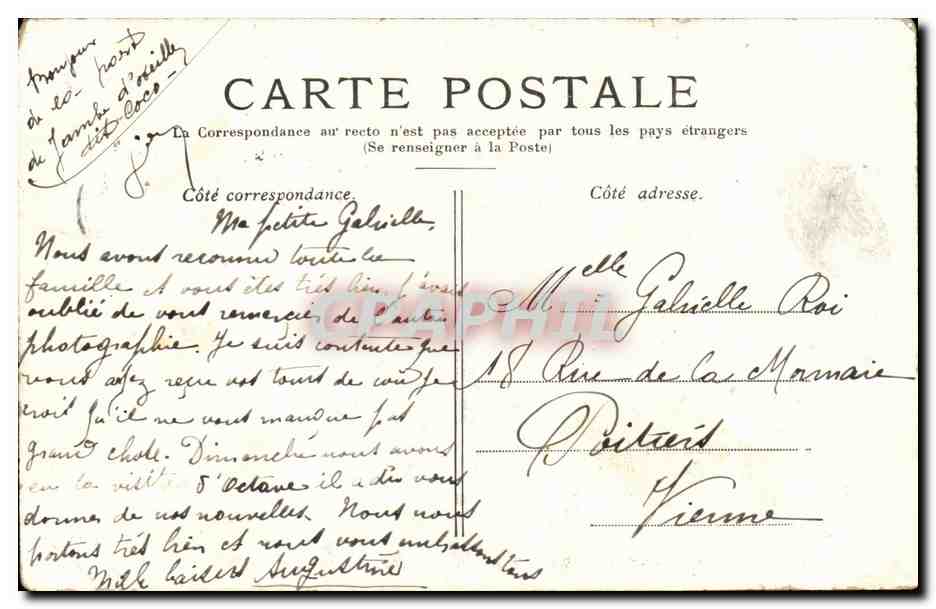 Bonjour
de la part
de Jambe d'oseille
dit Coco
CARTE POSTALE
La Correspondance au recto n'est pas acceptée par tous les pays étrangers
(Se renseigner à la Poste)
Côté correspondance.
Ma petite Gabrielle,
Nous avons reconnu toute la
famille et vous êtes très bien. J'avais
oublié de vous remercier de l'autre
photographie. Je suis contente que
vous ayez reçu vos tours de cou je
crois qu'il ne vous manque pas
grand chose. Dimanche nous avons
eu la visite d'Octave il a du vous
donner de nos nouvelles. Nous nous
portons très bien et nous vous embrassons tous
Mille baisers Augustine
Côté adresse.
Melle Gabrielle Roi
18 Rue de la Monnaie
Poitiers
Vienne
CPAPHIL